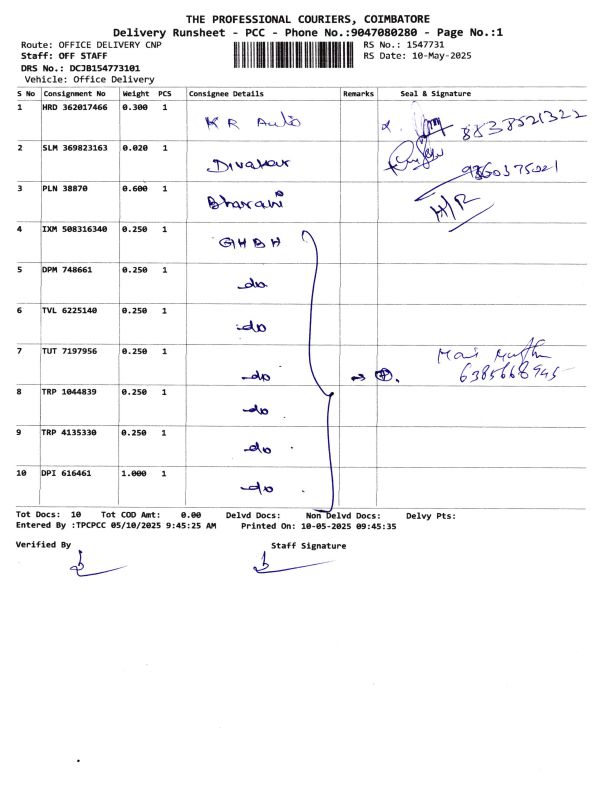 THE PROFESSIONAL COURIERS, COIMBATORE
Delivery Runsheet - PCC - Phone No.:9047080280 - Page No.:1
Route: OFFICE DELIVERY CNP RS No.: 1547731
Staff: OFF STAFF RS Date: 10-May-2025
DRS No.: DCJB154773101
Vehicle: Office Delivery
S No Consignment No Weight PCS Consignee Details Remarks Seal & Signature
1 HRD 362017466 0.300 1 KR Auto 8838521322
2 SLM 369823163 0.020 1 Divakar 9360375021
3 PLN 38870 0.600 1 Bharani H/R
4 IXM 508316340 0.250 1 GHBH
5 DPM 748661 0.250 1 do
6 TVL 6225140 0.250 1 do
7 TUT 7197956 0.250 1 do 6385668945
8 TRP 1044839 0.250 1 do
9 TRP 4135330 0.250 1 do
10 DPI 616461 1.000 1 do
Tot Docs: 10 Tot COD Amt: 0.00 Delvd Docs: Non Delvd Docs: Delvy Pts:
Entered By :TPCPCC 05/10/2025 9:45:25 AM Printed On: 10-05-2025 09:45:35
Verified By Staff Signature